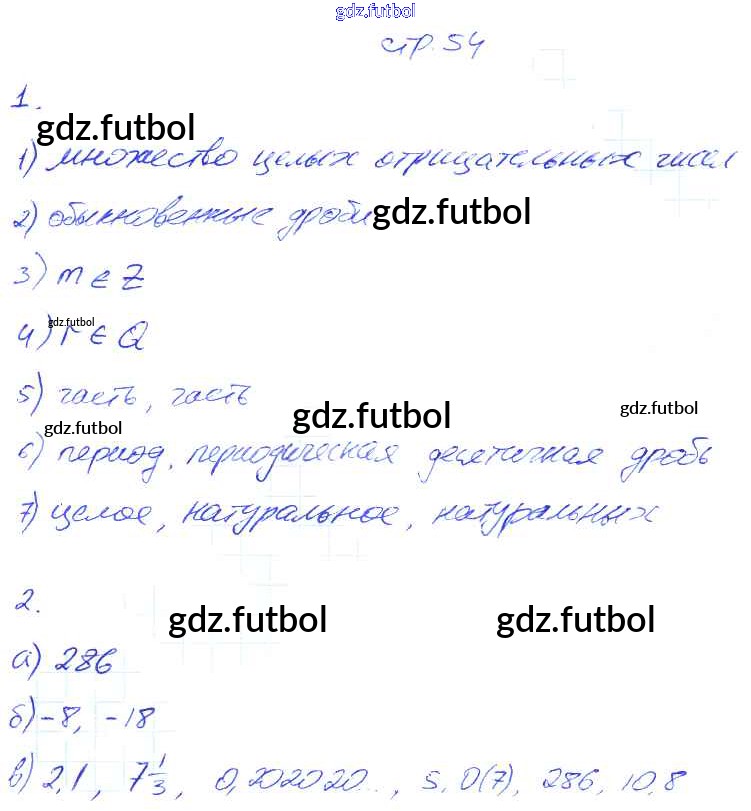 gdz.futbol
стр. 54
1.
gdz.futbol
1) множество целых отрицательных чисел
2) обыкновенные дроби gdz.futbol
3) m ∈ Z
gdz.futbol
4) r ∈ Q
5) часть, часть
gdz.futbol gdz.futbol
gdz.futbol
6) период, периодическая десятичная дробь
7) целое, натуральное, натуральных
2.
gdz.futbol gdz.futbol
а) 286
б) -8, -18
в) 2,1, 7 1/3, 0,202020..., 5,0(7), 286, 10,8